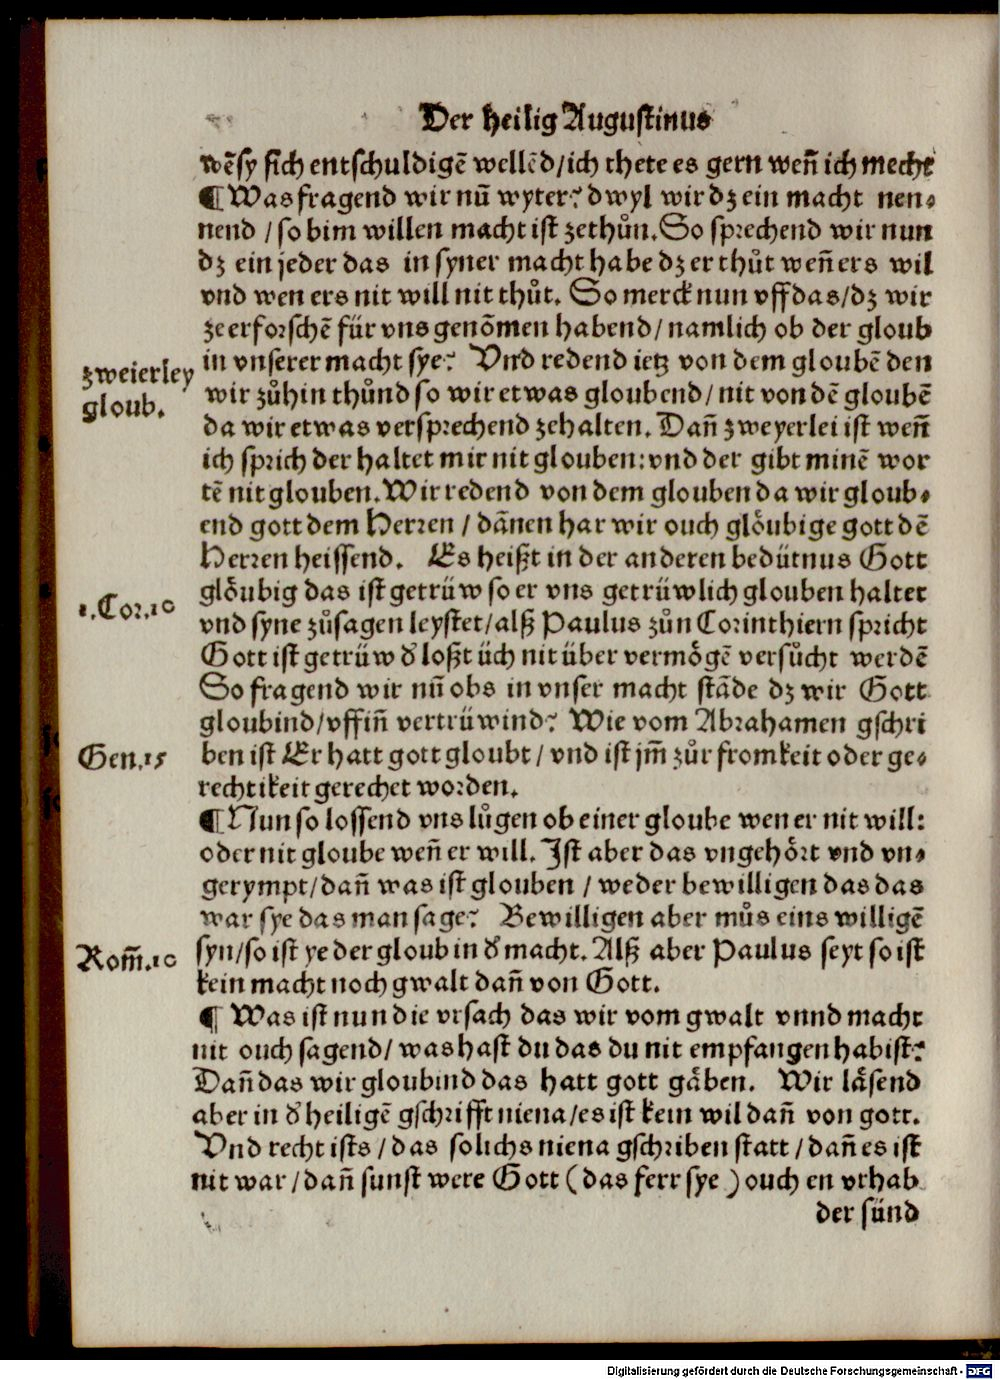 Der heilig Augustinus
wẽ sy sich entschuldigẽ wellẽd/ich thete es gern weñ ich mecht
¶ Was fragend wir nũ wyter? dwyl wir dz ein macht nen⸗
nend / so bim willen macht ist zethůn. So sprechend wir nun
dz ein jeder das in syner macht habe dz er thůt weñ ers wil
vnd wen ers nit will nit thůt. So merck nun vff das/dz wir
ze erforschẽ für vns genõmen habend/ namlich ob der gloub
in vnserer macht sye? Vnd redend ietz von dem gloubẽ den
zweierley
gloub.
wir zůhin thůnd so wir etwas gloubend/ nit von dẽ gloubẽ
da wir etwas versprechend zehalten. Dañ zweyerlei ist weñ
ich sprich der haltet mir nit glouben: vnd der gibt minẽ wor
tẽ nit glouben. Wir redend von dem glouben da wir gloub⸗
end gott dem Herren / dãnen har wir ouch glöubige gott dẽ
Herren heissend. Es heißt in der anderen bedütnus Gott
glöubig das ist getrüw so er vns getrüwlich glouben haltet
1.Cor.10
vnd syne zůsagen leystet/alß Paulus zůn Corinthiern spricht
Gott ist getrüw d' loßt üch nit über vermögẽ versůcht werdẽ
So fragend wir nũ obs in vnser macht stãde dz wir Gott
gloubind/vff iñ vertrüwind? Wie vom Abrahamen gschri
Gen.15
ben ist Er hatt gott gloubt / vnd ist jm̃ zůr fromkeit oder ge⸗
rechtikeit gerechet worden.
¶ Nun so lossend vns lůgen ob einer gloube wen er nit will:
oder nit gloube weñ er will. Ist aber das vngehört vnd vn⸗
gerympt/dañ was ist glouben / weder bewilligen das das
war sye das man sage? Bewilligen aber můs eins willigẽ
Rom̃.10
syn/so ist ye der gloub in d' macht. Alß aber Paulus seyt so ist
kein macht noch gwalt dañ von Gott.
¶ Was ist nun die vrsach das wir vom gwalt vnnd macht
nit ouch sagend/ was hast du das du nit empfangen habist?
Dañ das wir gloubind das hatt gott gäben. Wir läsend
aber in d' heiligẽ gschrifft niena/es ist kein wil dañ von gott.
Vnd recht ists / das solichs niena gschriben statt / dañ es ist
nit war / dañ sunst were Gott ( das ferr sye ) ouch en vrhab
der sünd
Digitalisierung gefördert durch die Deutsche Forschungsgemeinschaft - DFG